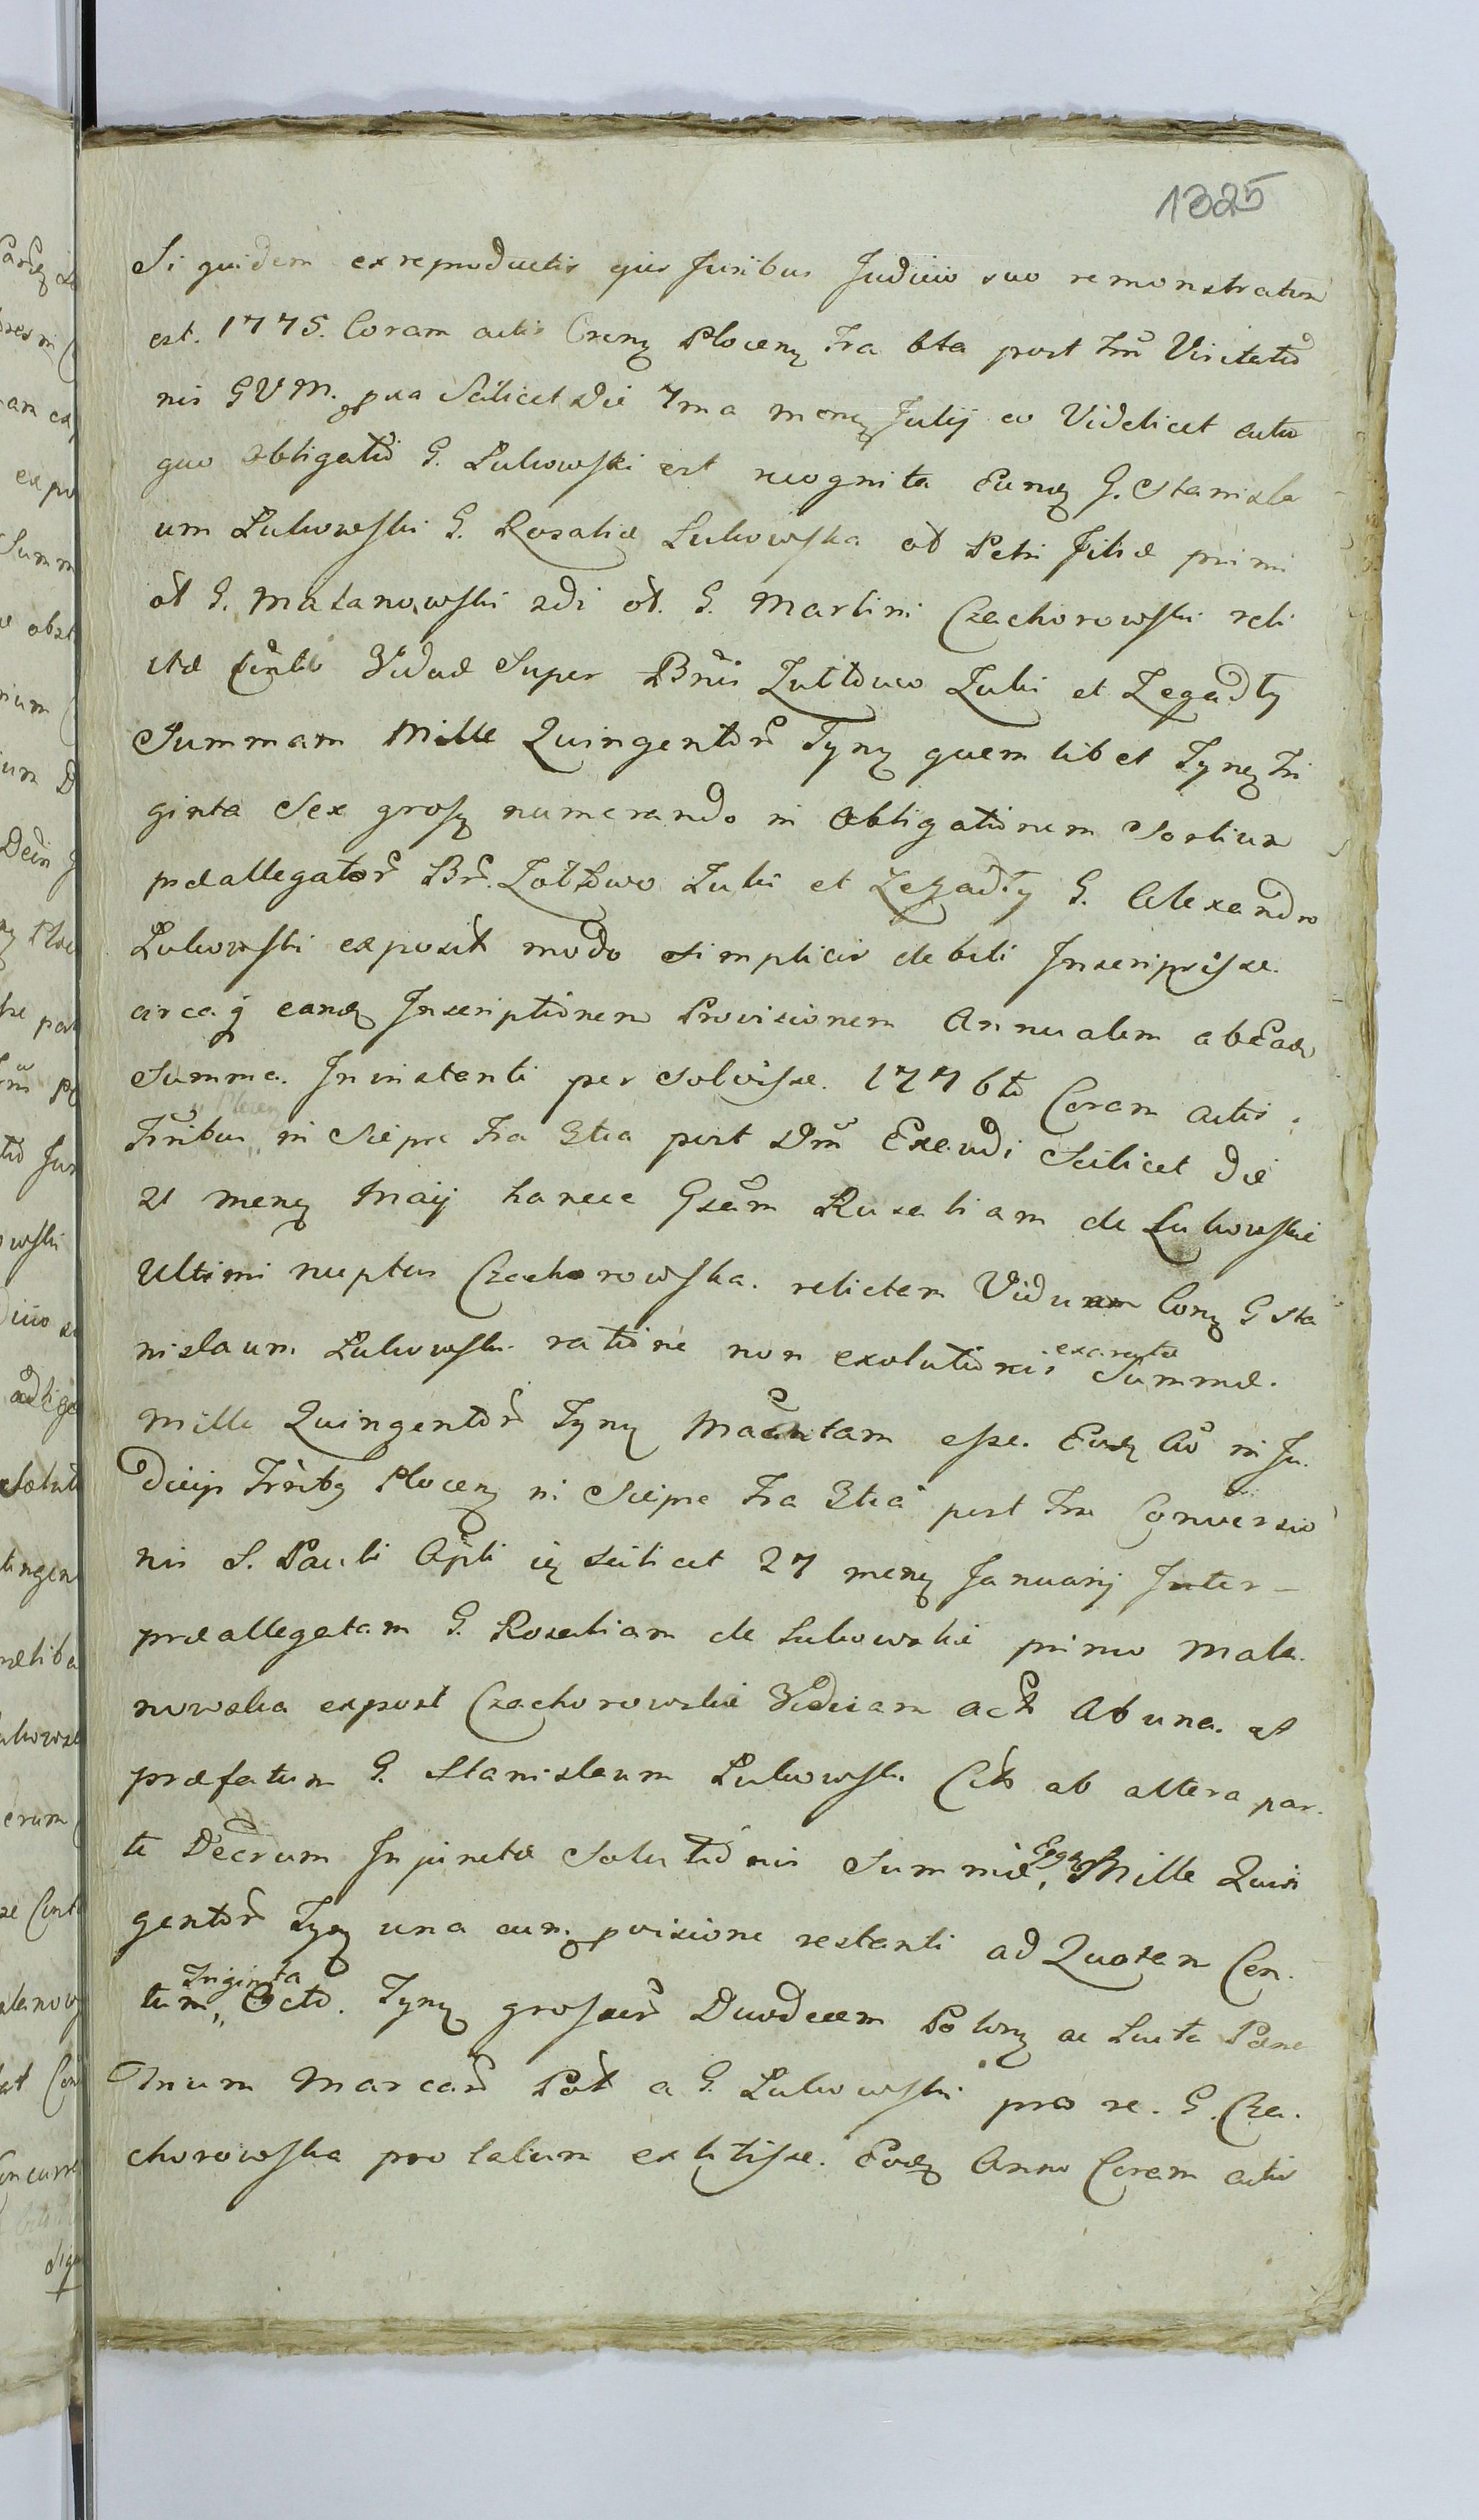 1325
Siquidem ex reproductis ejus Juribus Judicio suo remonstratum
est. 1775. Coram actis Crensz Plocensz Fra 6ta post Fm Visitatio
nis GVM. qua Scilicet Die 7ma mensz Julij eo Videlicet actu
quo obligatio G. Lukowski est recognita Eundz G. Stanisla
um Lukowski G. Rosaliæ Lukowska ol Petri filiæ primi
ol G. Malanowski 2di ol. G. Martini Czachorowski reli
ctæ Viduæ Super Bnis Zuki et Zegadly
Summam Mille Quingentor Tynsz quemlibet Tynsz Tri
ginta Sex grosz numerando in obligationem Sortium
præallegator Br. Zuki et Zegadly G. Alexandro
Lukowski exposit modo simplicis debiti Inscripsisse.
circa q eandz Inscriptionem Provisionem Annualem ab Eadz
Summa. In instanti persolvisse. 1776to Coram actis
Trnibus in Sieprc Fra 3tia post Dm Exaudi Scilicet die
21 mensz Maij hancce Gsam Rusaliam de Lukowskie
Ultimi nuptus Czachorowska. relictam Viduam Conz G Sta
nislaum Lukowski. ratione non exolutionis exaratæ Summæ.
Mille Quingentor Tynsz esse. Eodz Ao in Ju
dicijs Plocensz in Sieprc Fra 3tia post Fm Conversio
nis S. Pauli Apli scilicet 27 mensz Januarij Inter-
præallegatam G. Rosaliam de Lukowskie primo Mala.
nowska expost Czachorowskie Viduam ab una. et
præfatum G. Stanislaum Lukowski Cit ab altera par.
te Decrum Injunctæ Solutionis Summæ Mille Quin
gentor Tynsz una cum pvisione restanti ad Quotam Cen.
tum Triginta Octo. Tynsz grossor Duodecem Polonz ac Lucta Pæna
Trium Marcar a G. Lukowski pro re. G. Cza.
chorowska prolatum extitisse. Eodz Anno Coram actis